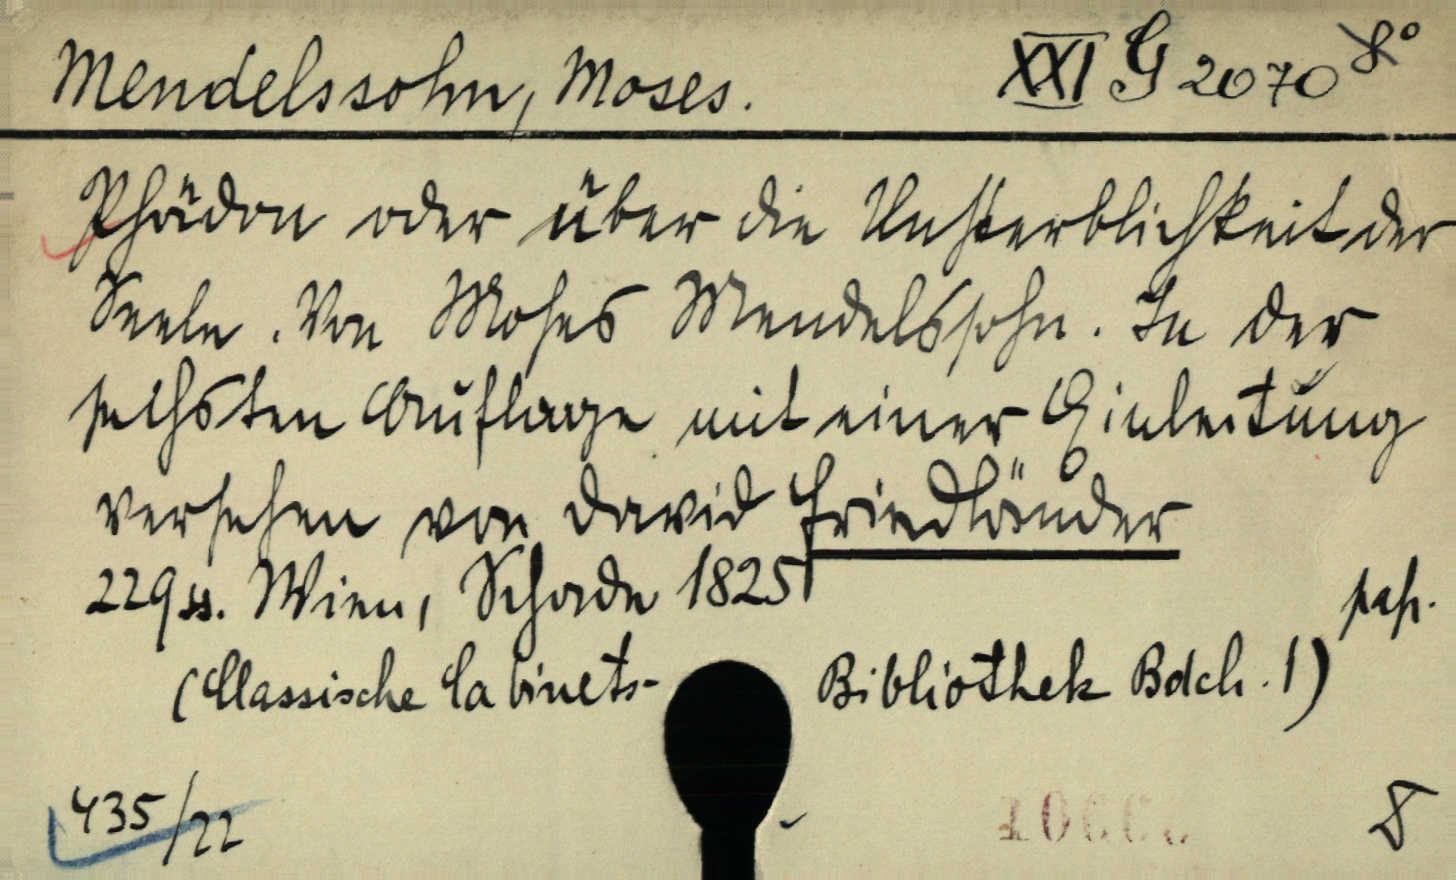 Mendelssohn, Moses. XXI G 2070 8°
Phädon oder über die Unsterblichkeit der
Seele. Von Moses Mendelssohn. In der
sechsten Auflage mit einer Einleitung
versehen von David Friedländer
229 SS. Wien, Schade 1825
(Classische Cabinets-Bibliothek Bdch. 1)
435/22